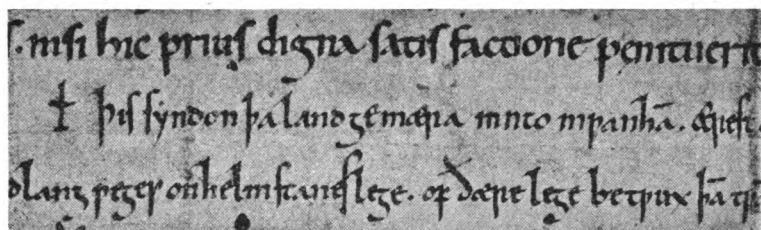 s. nisi hic prius digna satis factione penituerit
✝ þis syndon þa land gemæra into niƿanhā. ærest
dlang ƿeges on helmstanes lege. of ðære lege betƿux þa